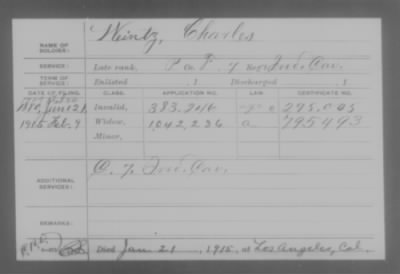 NAME OF SOLDIER: Weintz, Charles
SERVICE: Late rank, P Co. F, 7 Reg't Ind. Cav.
TERM OF SERVICE: Enlisted , 1 Discharged , 1
DATE OF FILING. CLASS. APPLICATION NO. LAW. CERTIFICATE NO.
June 12 Invalid, 383.246
1915 Feb. 9 Widow, 1,042,236 795493
Minor,
ADDITIONAL SERVICES: C. 7. Ind. Cav.
REMARKS:
Died Jan 21, 1915, at Los Angeles, Cal.